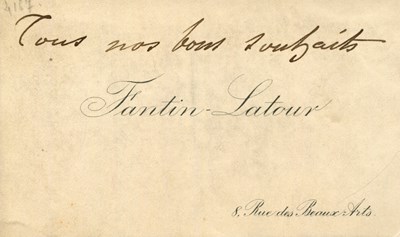 4167
Tous nos bons souhaits
Fantin-Latour
8, Rue des Beaux-Arts.